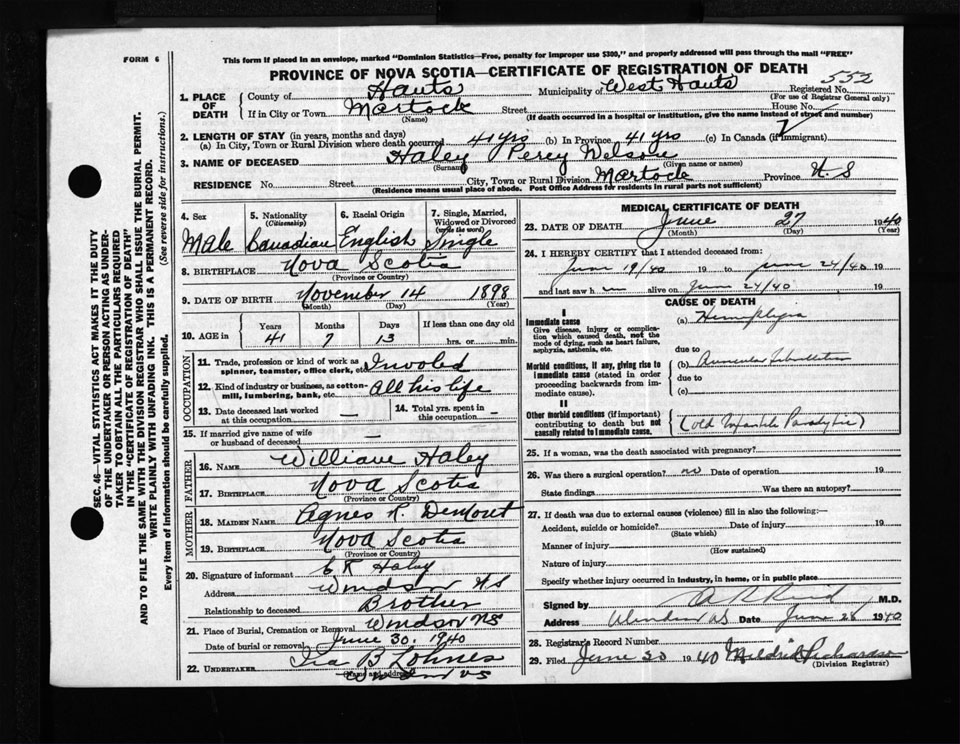 FORM 6
This form if placed in an envelope, marked "Dominion Statistics—Free, penalty for improper use $300," and properly addressed will pass through the mail "FREE"
PROVINCE OF NOVA SCOTIA—CERTIFICATE OF REGISTRATION OF DEATH
552
1. PLACE OF DEATH
County of Hants Municipality of West Hants Registered No.
(For use of Registrar General only)
If in City or Town Martock Street House No.
(Name) (If death occurred in a hospital or institution, give the name instead of street and number)
2. LENGTH OF STAY (in years, months and days)
(a) In City, Town or Rural Division where death occurred 41 yrs (b) In Province 41 yrs (c) In Canada (if immigrant)
3. NAME OF DECEASED Haley Percy Wilson
(Surname) (Given name or names)
RESIDENCE No. Street City, Town or Rural Division Martock Province N. S
(Residence means usual place of abode. Post Office Address for residents in rural parts not sufficient)
SEC. 46—VITAL STATISTICS ACT MAKES IT THE DUTY
OF THE UNDERTAKER OR PERSON ACTING AS UNDER-
TAKER TO OBTAIN ALL THE PARTICULARS REQUIRED
IN THE "CERTIFICATE OF REGISTRATION OF DEATH"
AND TO FILE THE SAME WITH THE DIVISION REGISTRAR WHO SHALL ISSUE THE BURIAL PERMIT.
WRITE PLAINLY WITH UNFADING INK. THIS IS A PERMANENT RECORD.
Every item of information should be carefully supplied. (See reverse side for instructions.)
4. Sex 5. Nationality (Citizenship) 6. Racial Origin 7. Single, Married, Widowed or Divorced (write the word)
Male Canadian English Single
8. BIRTHPLACE Nova Scotia
(Province or Country)
9. DATE OF BIRTH November 14 1898
(Month) (Day) (Year)
10. AGE in Years Months Days If less than one day old
41 7 13 hrs. or min.
OCCUPATION
11. Trade, profession or kind of work as spinner, teamster, office clerk, etc.
12. Kind of industry or business, as cotton-mill, lumbering, bank, etc. All his life
13. Date deceased last worked at this occupation — 14. Total yrs. spent in this occupation —
15. If married give name of wife or husband of deceased —
FATHER
16. NAME William Haley
17. BIRTHPLACE Nova Scotia
(Province or Country)
MOTHER
18. MAIDEN NAME Agnes R. DeMont
19. BIRTHPLACE Nova Scotia
(Province or Country)
20. Signature of informant Haley
Address Windsor N S
Relationship to deceased Brother
21. Place of Burial, Cremation or Removal Windsor NS
Date of burial or removal June 30. 1940
22. UNDERTAKER Ira B Lohnes
(Name and address)
MEDICAL CERTIFICATE OF DEATH
23. DATE OF DEATH June 27 1940
(Month) (Day) (Year)
24. I HEREBY CERTIFY that I attended deceased from:
June 19/40 19 to June 24/40 19
and last saw h im alive on June 24/40 19
CAUSE OF DEATH
I
Immediate cause (a) Hemiplegia
Give disease, injury or complication which caused death, not the mode of dying, such as heart failure, asphyxia, asthenia, etc.
due to
Morbid conditions, if any, giving rise to immediate cause (stated in order proceeding backwards from immediate cause). (b) Auricular fibrillation
due to
(c)
II
Other morbid conditions (if important) contributing to death but not causally related to immediate cause. (old Infantile Paralytic)
25. If a woman, was the death associated with pregnancy?
26. Was there a surgical operation? no Date of operation 19
State findings Was there an autopsy?
27. If death was due to external causes (violence) fill in also the following:—
Accident, suicide or homicide? Date of injury 19
(State which)
Manner of injury
(How sustained)
Nature of injury
Specify whether injury occurred in industry, in home, or in public place
Signed by A R Reid M.D.
Address Windsor NS Date June 28 1940
28. Registrar's Record Number
29. Filed June 30 1940 Mildred Richardson
(Division Registrar)